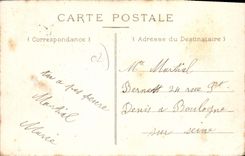 CARTE POSTALE
(Correspondance)
Adresse du Destinataire)
Mr Martial
Bernett 24 rue St
Denis à Boulogne
sur seine
on a pas
Martial
Marie